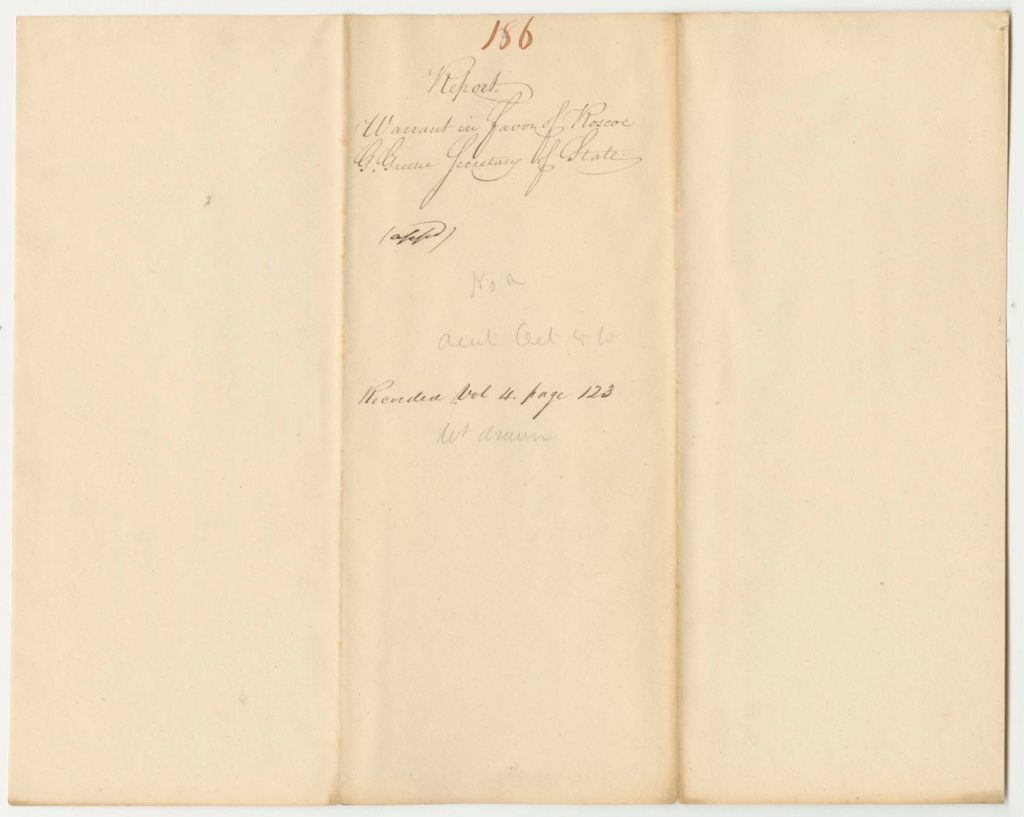 186
Report.
Warrant in favor of Roscoe
G. Greene Secretary of State.
(appd)
No
Oct
Recorded Vol 4. page 123
Wt drawn